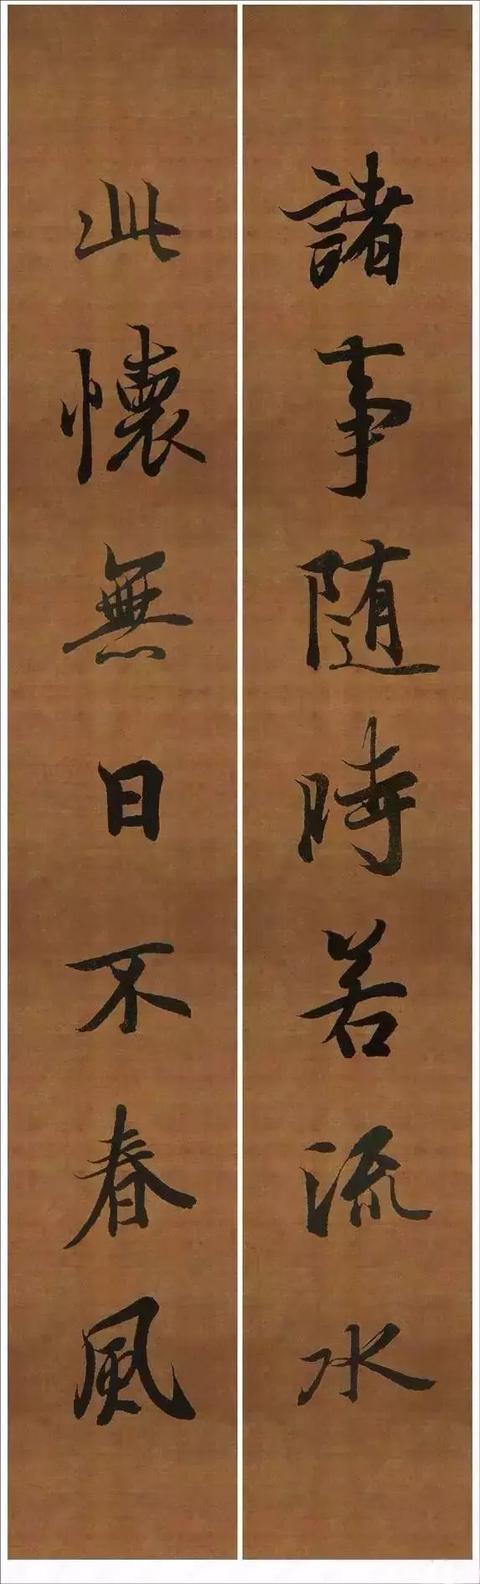 諸事随時若流水
此懷無日不春風